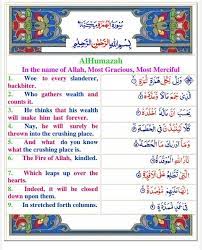 سُورَةُ الْهُمَزَةِ
بِسْمِ اللَّهِ الرَّحْمَٰنِ الرَّحِيمِ
AlHumazah
In the name of Allah, Most Gracious, Most Merciful
1. Woe to every slanderer, backbiter.
وَيْلٌ لِّكُلِّ هُمَزَةٍ لُّمَزَةٍ
2. Who gathers wealth and counts it.
الَّذِي جَمَعَ مَالًا وَعَدَّدَهُ
3. He thinks that his wealth will make him last forever.
يَحْسَبُ أَنَّ مَالَهُ أَخْلَدَهُ
4. Nay, he will surely be thrown into the crushing place.
كَلَّا لَيُنبَذَنَّ فِي الْحُطَمَةِ
5. And what do you know what the crushing place is.
وَمَا أَدْرَاكَ مَا الْحُطَمَةُ
6. The Fire of Allah, kindled.
نَارُ اللَّهِ الْمُوقَدَةُ
7. Which leaps up over the hearts.
الَّتِي تَطَّلِعُ عَلَى الْأَفْئِدَةِ
8. Indeed, it will be closed down upon them.
إِنَّهَا عَلَيْهِم مُّؤْصَدَةٌ
9. In stretched forth columns.
فِي عَمَدٍ مُّمَدَّدَةٍ